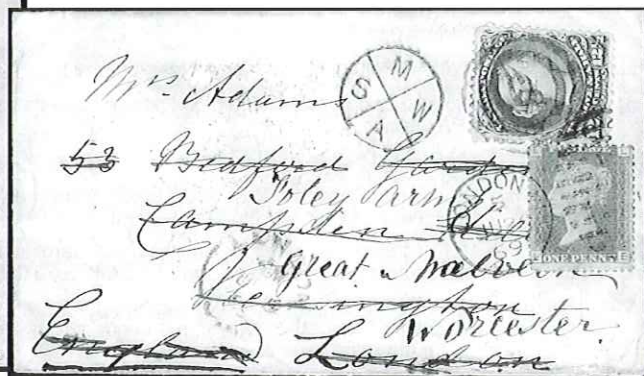 Mrs Adams
53 Bedford Gardens
Foley Arms
Campden Hill
Great Malvern
Kensington
Worcester
England London
S M W A
LONDON
69
ONE PENNY
E